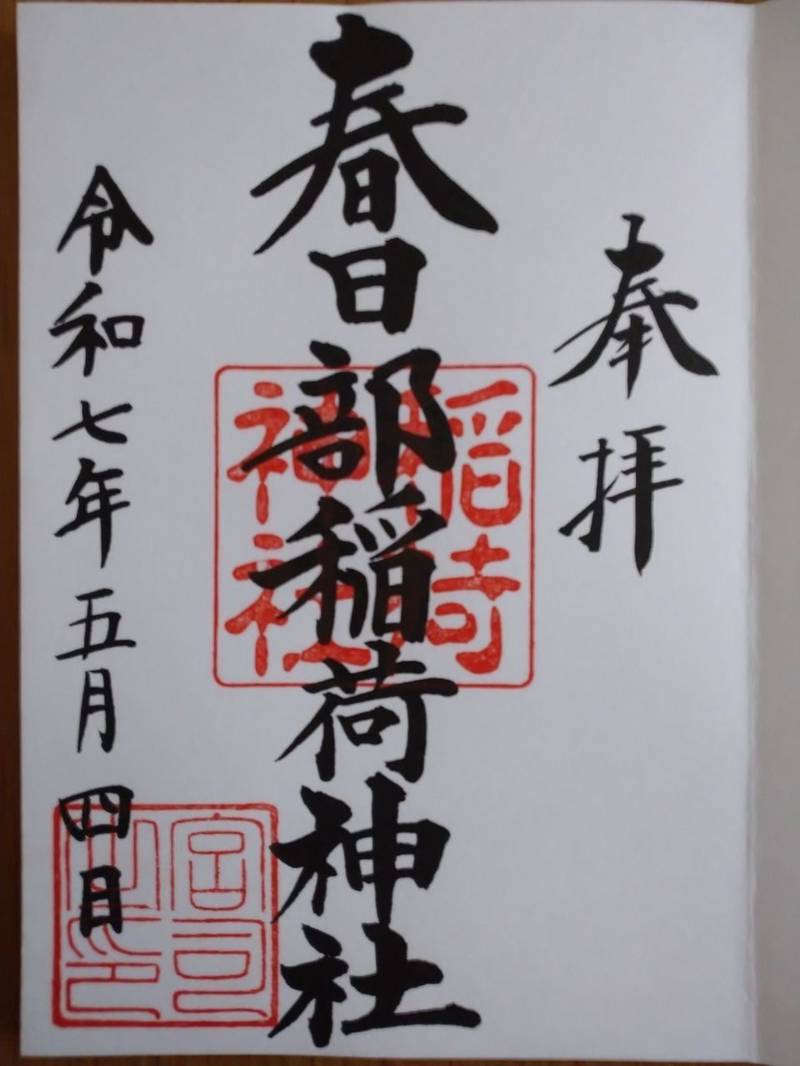 奉拝
春日部稲荷神社
稲荷神社
令和七年五月四日
宮司之印